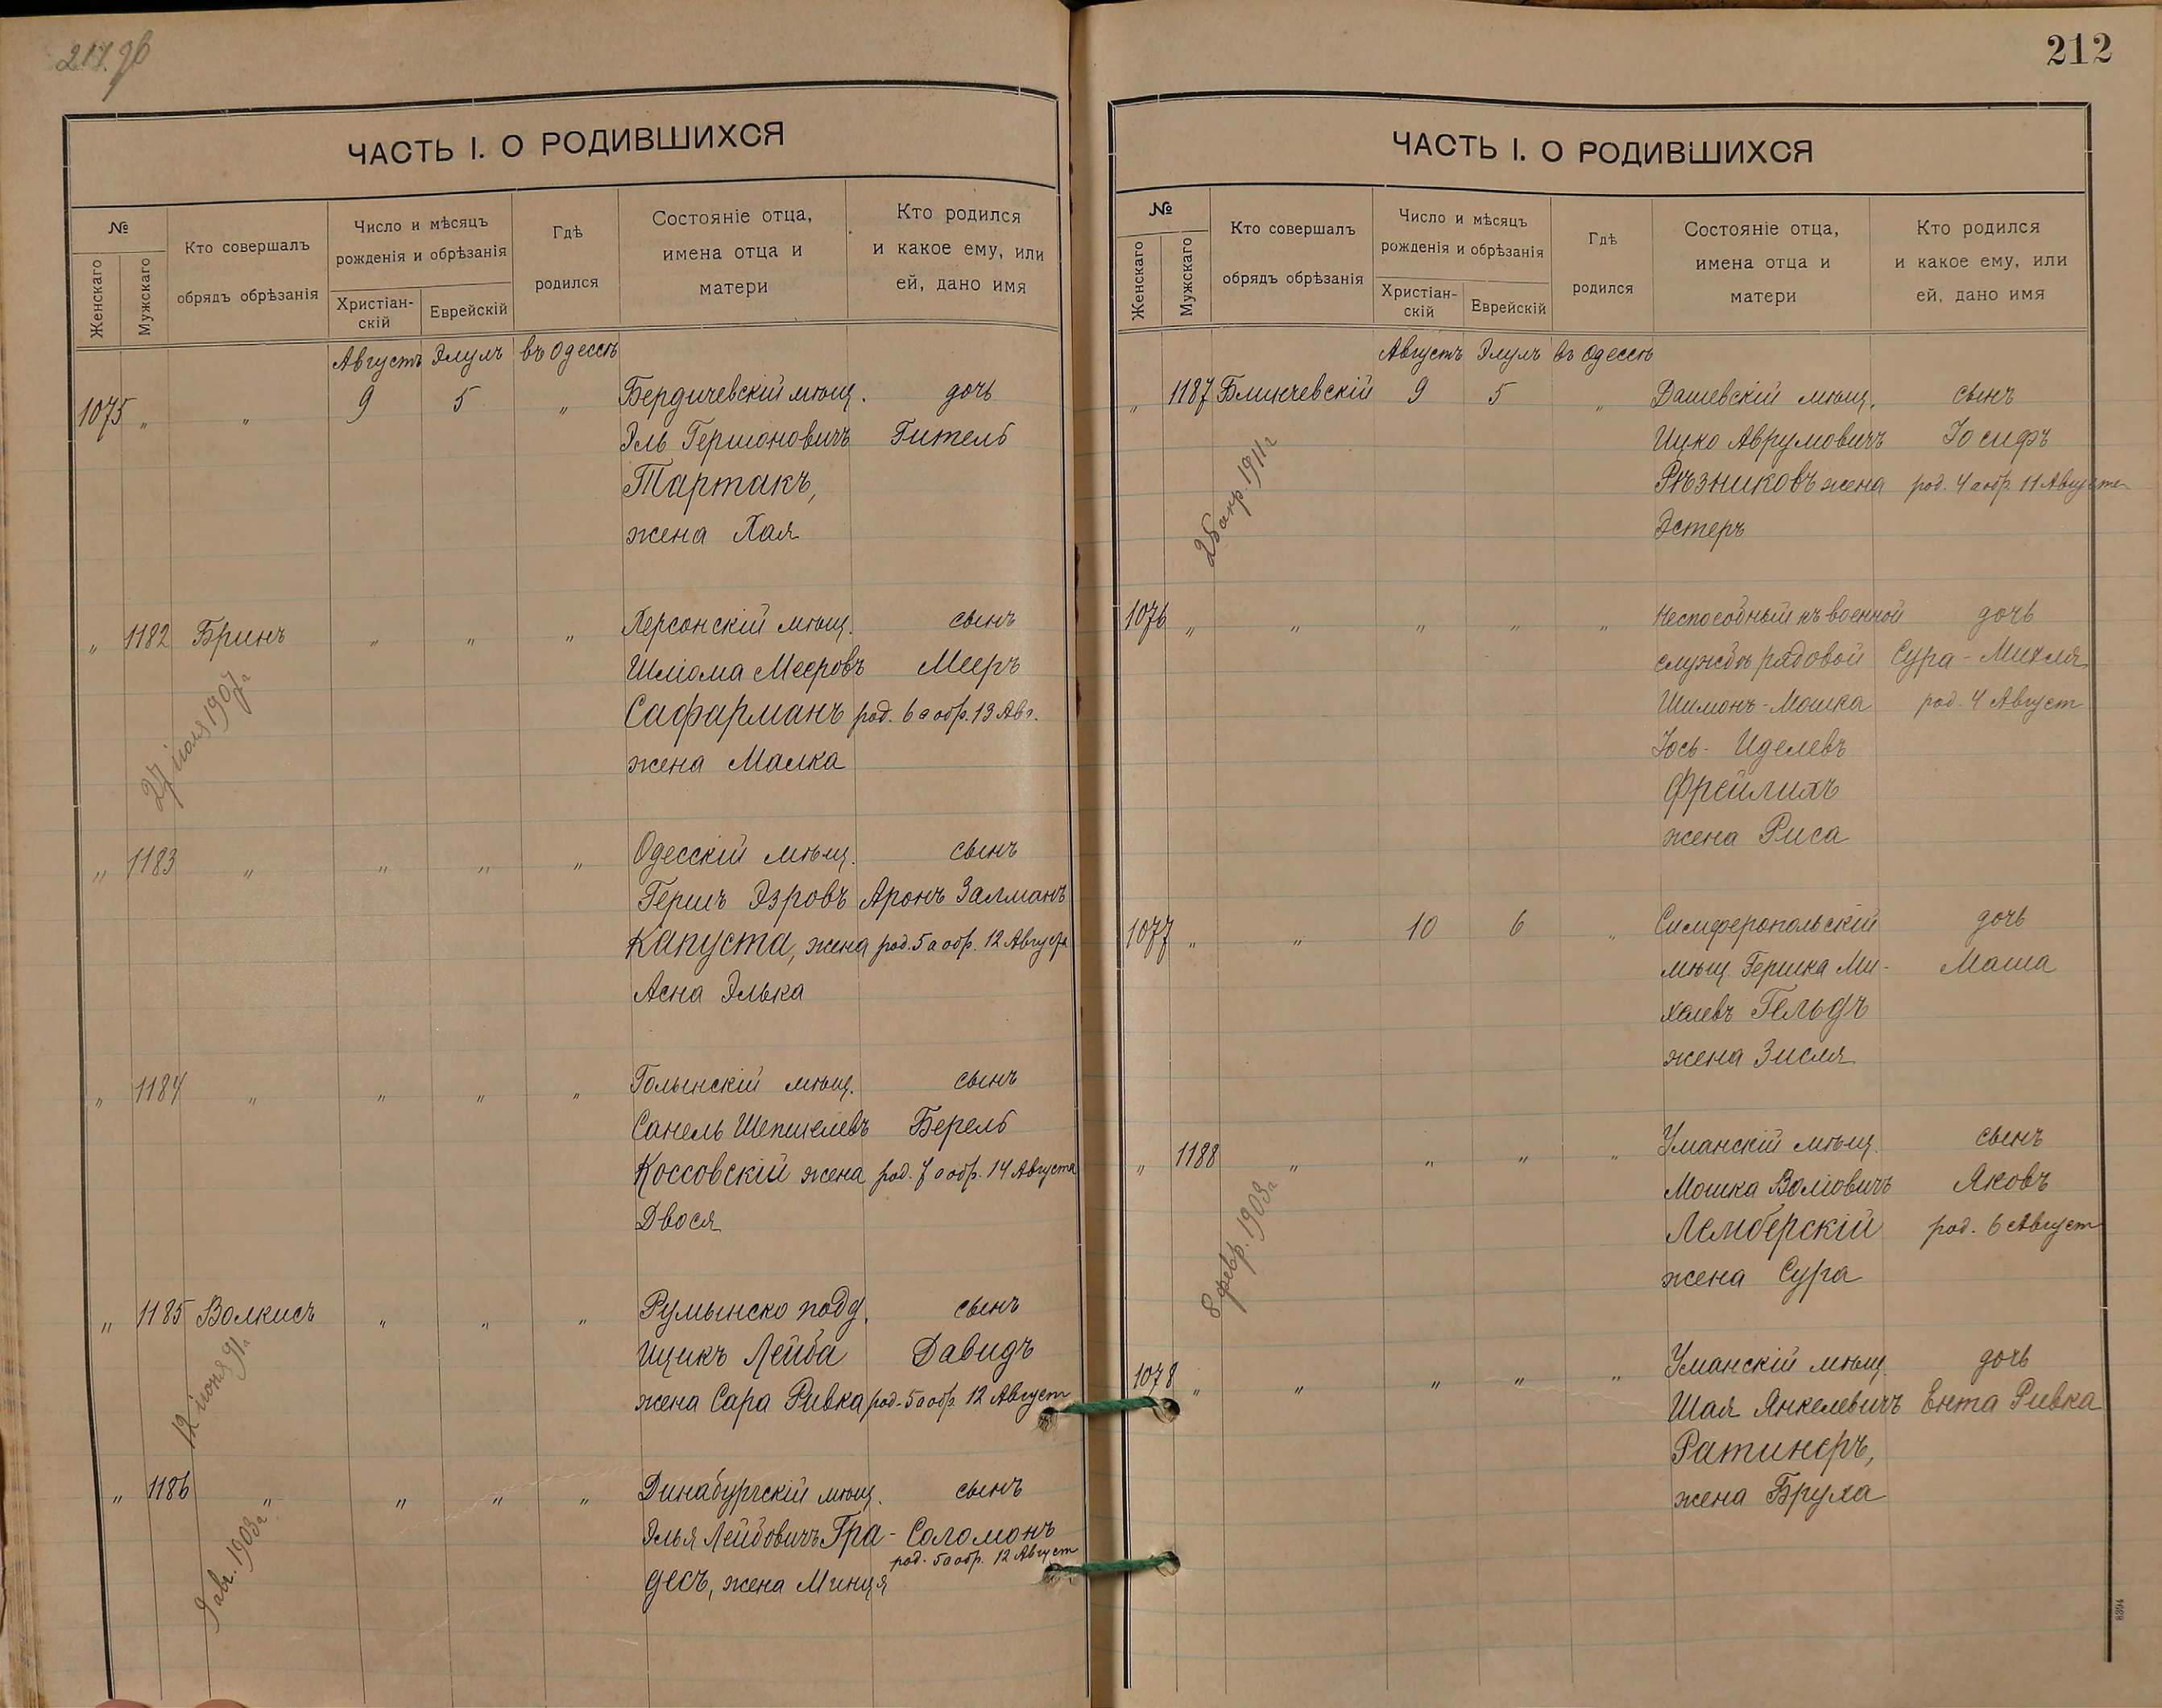 ЧАСТЬ I. О РОДИВШИХСЯ
№
Женскаго
Мужскаго
Кто совершалъ
обрядъ обрѣзанія
Число и мѣсяцъ
рожденія и обрѣзанія
Христіан-
скій
Еврейскій
Гдѣ
родился
Состояніе отца,
имена отца и
матери
Кто родился
и какое ему, или
ей, дано имя
Августъ Элулъ въ Одессѣ
1075 „ „ 9 5 „ Бердичевскій мѣщ. дочь
Эль Гершоновичъ Гитель
Тартакъ,
жена Хая
„ 1182 Бринъ „ „ „ Херсонскій мѣщ. сынъ
Шліома Мееровъ Мееръ
Сафарманъ род. 6 а обр. 13 Авг.
жена Малка
27 іюля 1907 г
„ 1183 „ „ „ „ Одесскій мѣщ. сынъ
Гершъ Эзровъ Аронъ Залманъ
Капуста, жена род. 5 а обр. 12 Августа
Асна Элька
„ 1184 „ „ „ „ Голынскій мѣщ. сынъ
Санель Шепшелевъ Берель
Коссовскій жена род. 7 а обр. 14 Августа
Двося
„ 1185 Волкисъ „ „ „ Румынско подд. сынъ
Ицикъ Лейба Давидъ
жена Сара Ривка род. 5 а обр. 12 Август
„ 1186 „ „ „ „ Динабургскій мѣщ. сынъ
Элья Лейбовичъ Гра- Соломонъ
род. 5 а обр. 12 Август
десъ, жена Минця
9 авг. 1903 г
212
ЧАСТЬ I. О РОДИВШИХСЯ
№
Женскаго
Мужскаго
Кто совершалъ
обрядъ обрѣзанія
Число и мѣсяцъ
рожденія и обрѣзанія
Христіан-
скій
Еврейскій
Гдѣ
родился
Состояніе отца,
имена отца и
матери
Кто родился
и какое ему, или
ей, дано имя
Августъ Элулъ въ Одессѣ
„ 1187 Блинчевскій 9 5 „ Дашевскій мѣщ. сынъ
Ицко Аврумовичъ Іосифъ
Рѣзниковъ жена род. 4 а обр. 11 Августа
Эстеръ
25 апр. 1911 г
1076 „ „ „ „ „ Неспособный къ военной дочь
службѣ рядовой Сура-Михля
Шимонъ-Мошка род. 4 Август
Іось-Иделевъ
Фрейлихъ
жена Риса
1077 „ „ 10 6 „ Симферопольскій дочь
мѣщ. Гершка Ми- Маша
хелевъ Гельдъ
жена Зисля
„ 1188 „ „ „ „ Уманскій мѣщ. сынъ
Мошка Воліовичъ Яковъ
Лемберскій род. 6 Август
жена Сура
8 февр. 1903 г
1078 „ „ „ „ „ Уманскій мѣщ. дочь
Шая Янкелевичъ Ента Ривка
Ратинеръ,
жена Бруха
8394